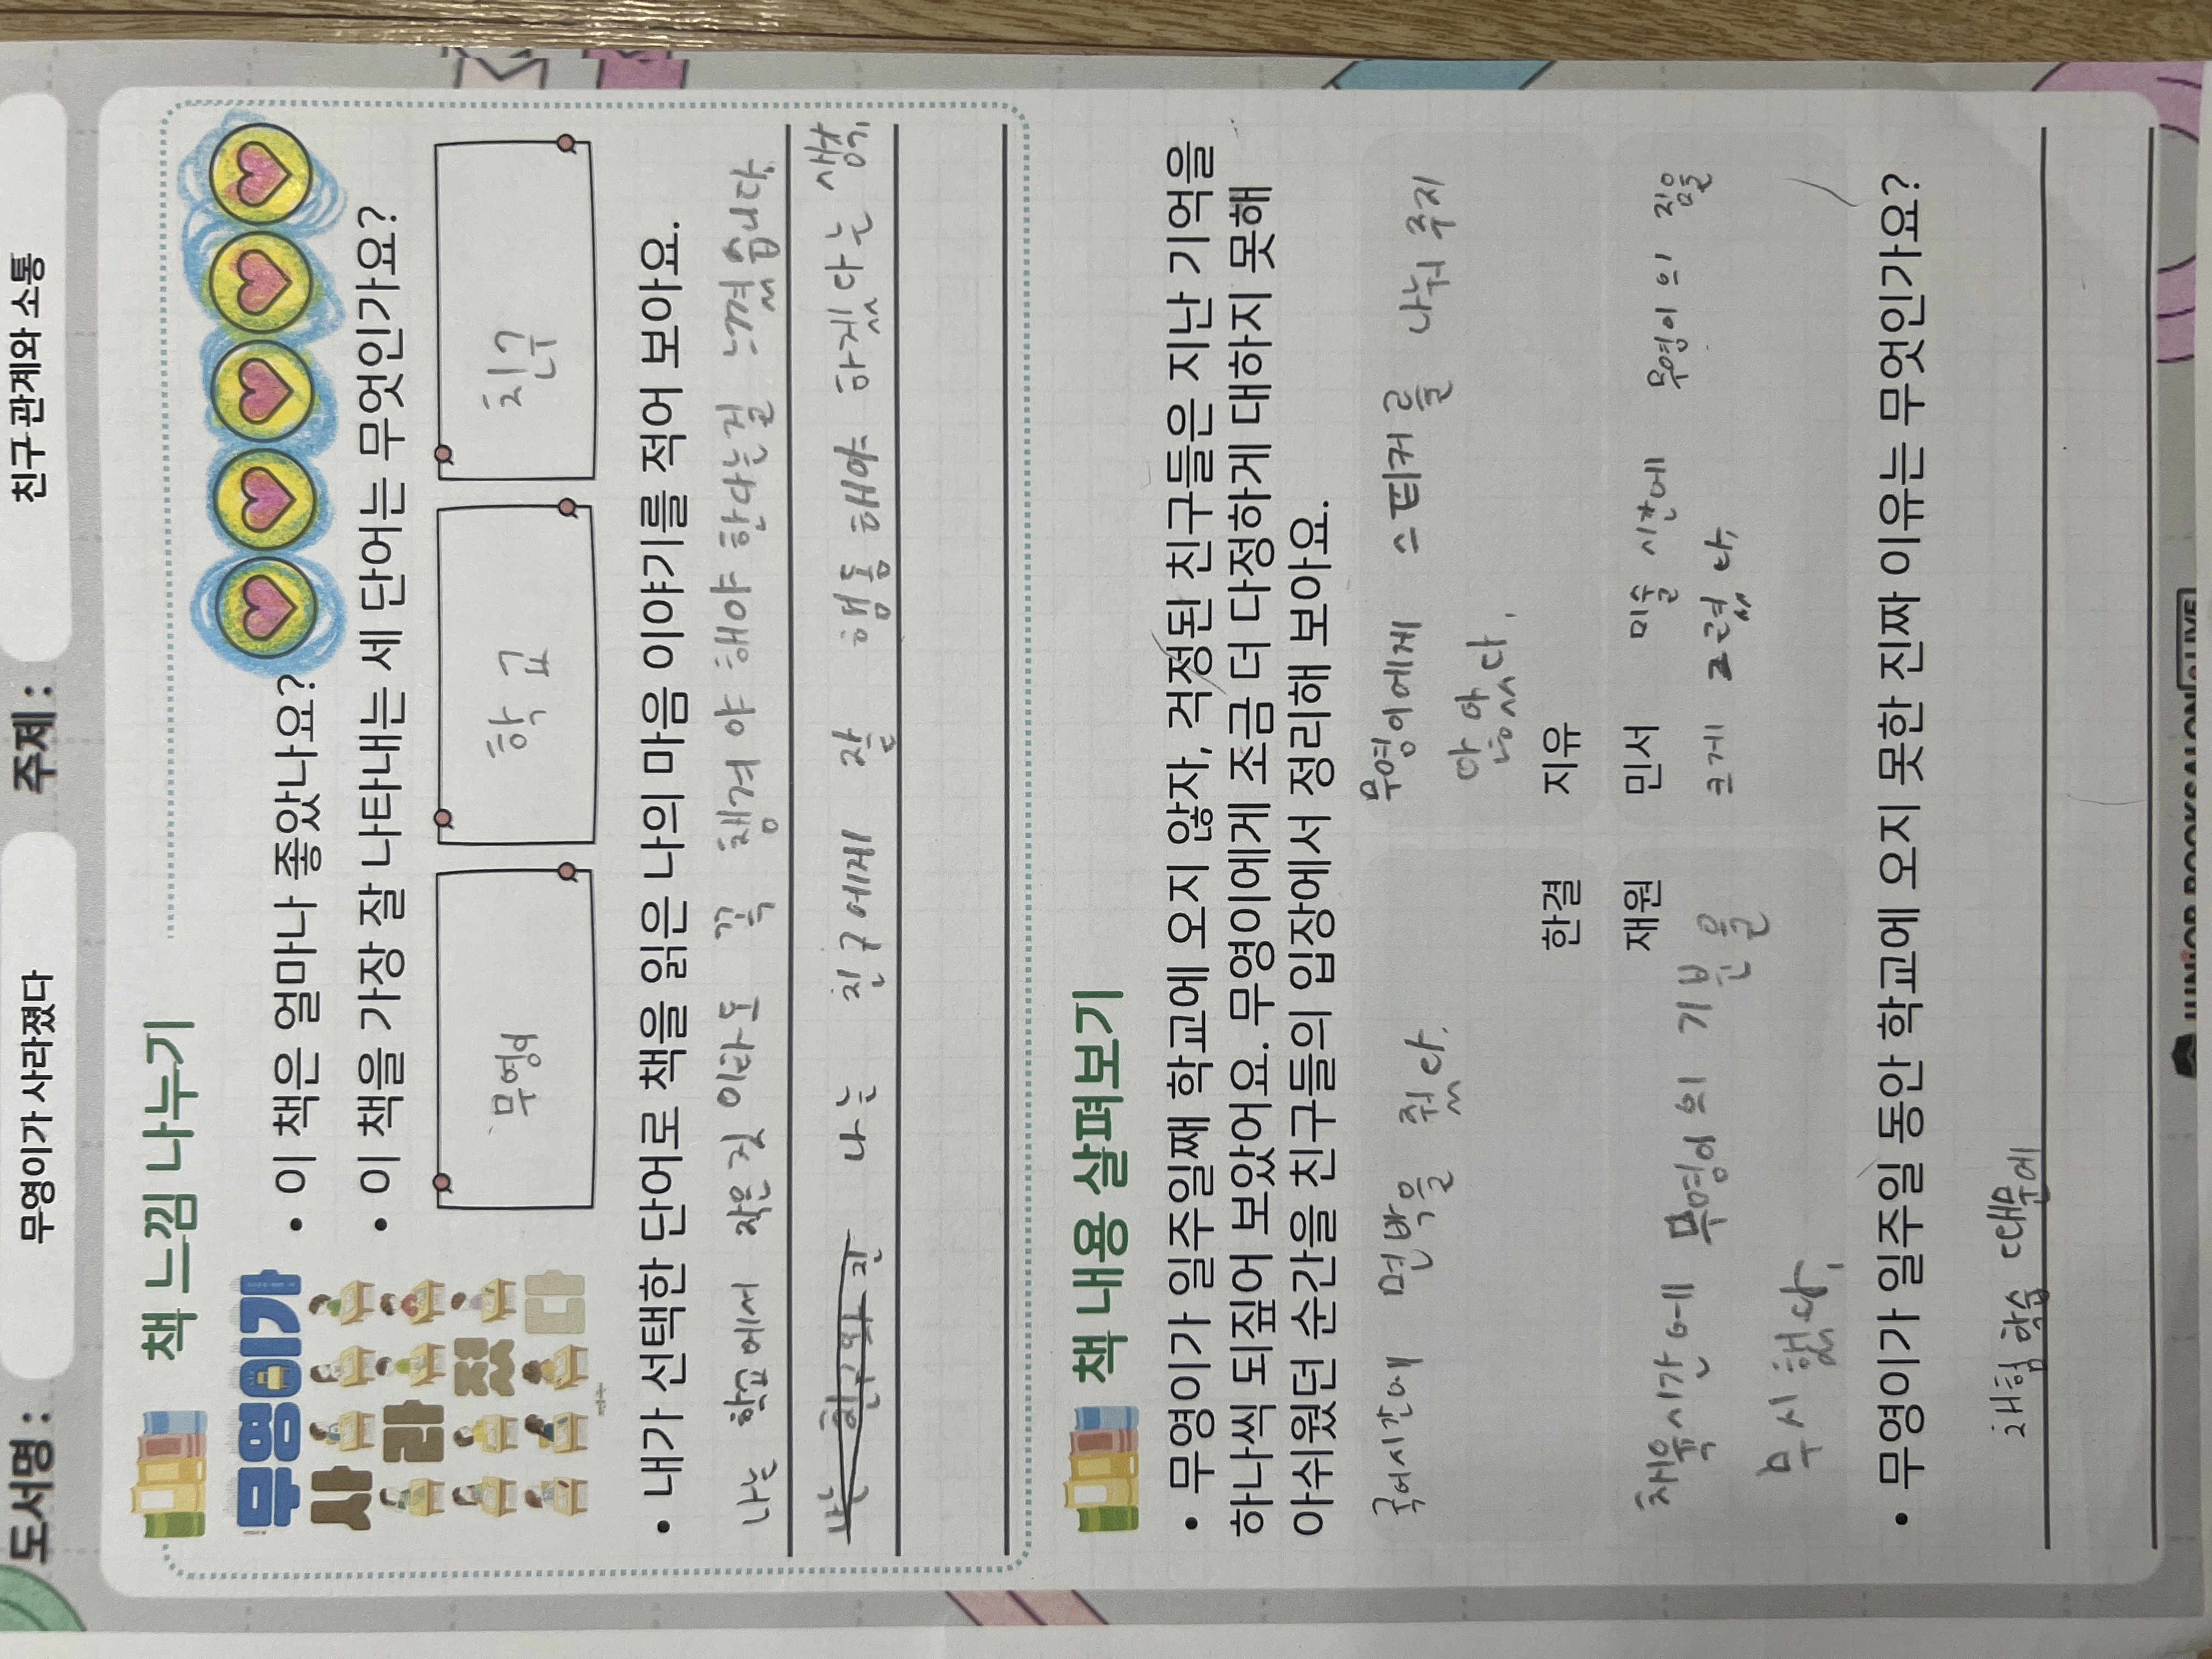 도서명 : 무영이가 사라졌다 주제 : 친구 관계와 소통
책 느낌 나누기
무영이가
사라졌다
• 이 책은 얼마나 좋았나요?
• 이 책을 가장 잘 나타내는 세 단어는 무엇인가요?
무영이 학교 친구
• 내가 선택한 단어로 책을 읽은 나의 마음 이야기를 적어 보아요.
나는 학교에서 작은 것이라도 꼭 챙겨야 해야 한다는걸 느꼈습니다.
나는 친구에게 잘 행동해야 하겠다는 생각
책 내용 살펴보기
• 무영이가 일주일째 학교에 오지 않자, 걱정된 친구들은 지난 기억을
하나씩 되짚어 보았어요. 무영이에게 조금 더 다정하게 대하지 못해
아쉬웠던 순간을 친구들의 입장에서 정리해 보아요.
국어시간에 면박을 줬다.
한결
무영이에게 스티커를 나눠주지
않았다.
지유
재원
체육시간에 무영이의 기분을
무시했다.
민서
미술 시간에 무영이의 짐을
크게 그렸다.
• 무영이가 일주일 동안 학교에 오지 못한 진짜 이유는 무엇인가요?
체험학습 때문에
JUNiOR BOOKSALON@LIVE